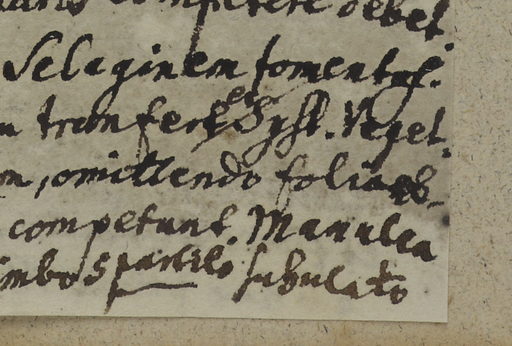 competere debet
Selaginem tomentos.
transfert et Syst. Veget.
omittendo folia
competunt. Manulea
limbo 5partito subulato